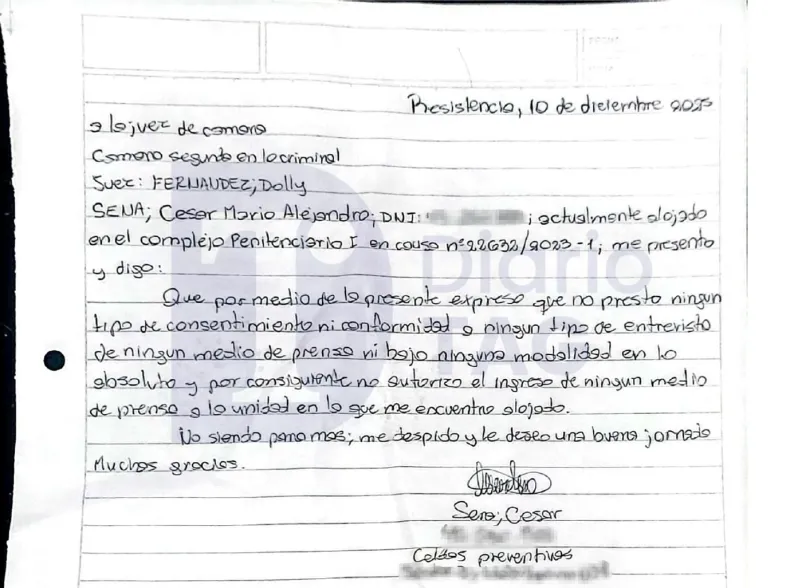 Resistencia, 10 de diciembre 2025
a la juez de camara
Camara segunda en lo criminal
Juez: FERNANDEZ; Dolly
SENA; Cesar Mario Alejandro; DNI: ; actualmente alojado
en el complejo Penitenciario I en causa nº22632/2023-1; me presento
y digo:
Que por medio de la presente expreso que no presto ningun
tipo de consentimiento ni conformidad a ningun tipo de entrevista
de ningun medio de prensa ni bajo ninguna modalidad en lo
absoluto y por consiguiente no autorizo el ingreso de ningun medio
de prensa a la unidad en la que me encuentro alojado.
No siendo para mas; me despido y le deseo una buena jornada
Muchas gracias.
Sena; Cesar
Celdas preventivas
Diario
TAG